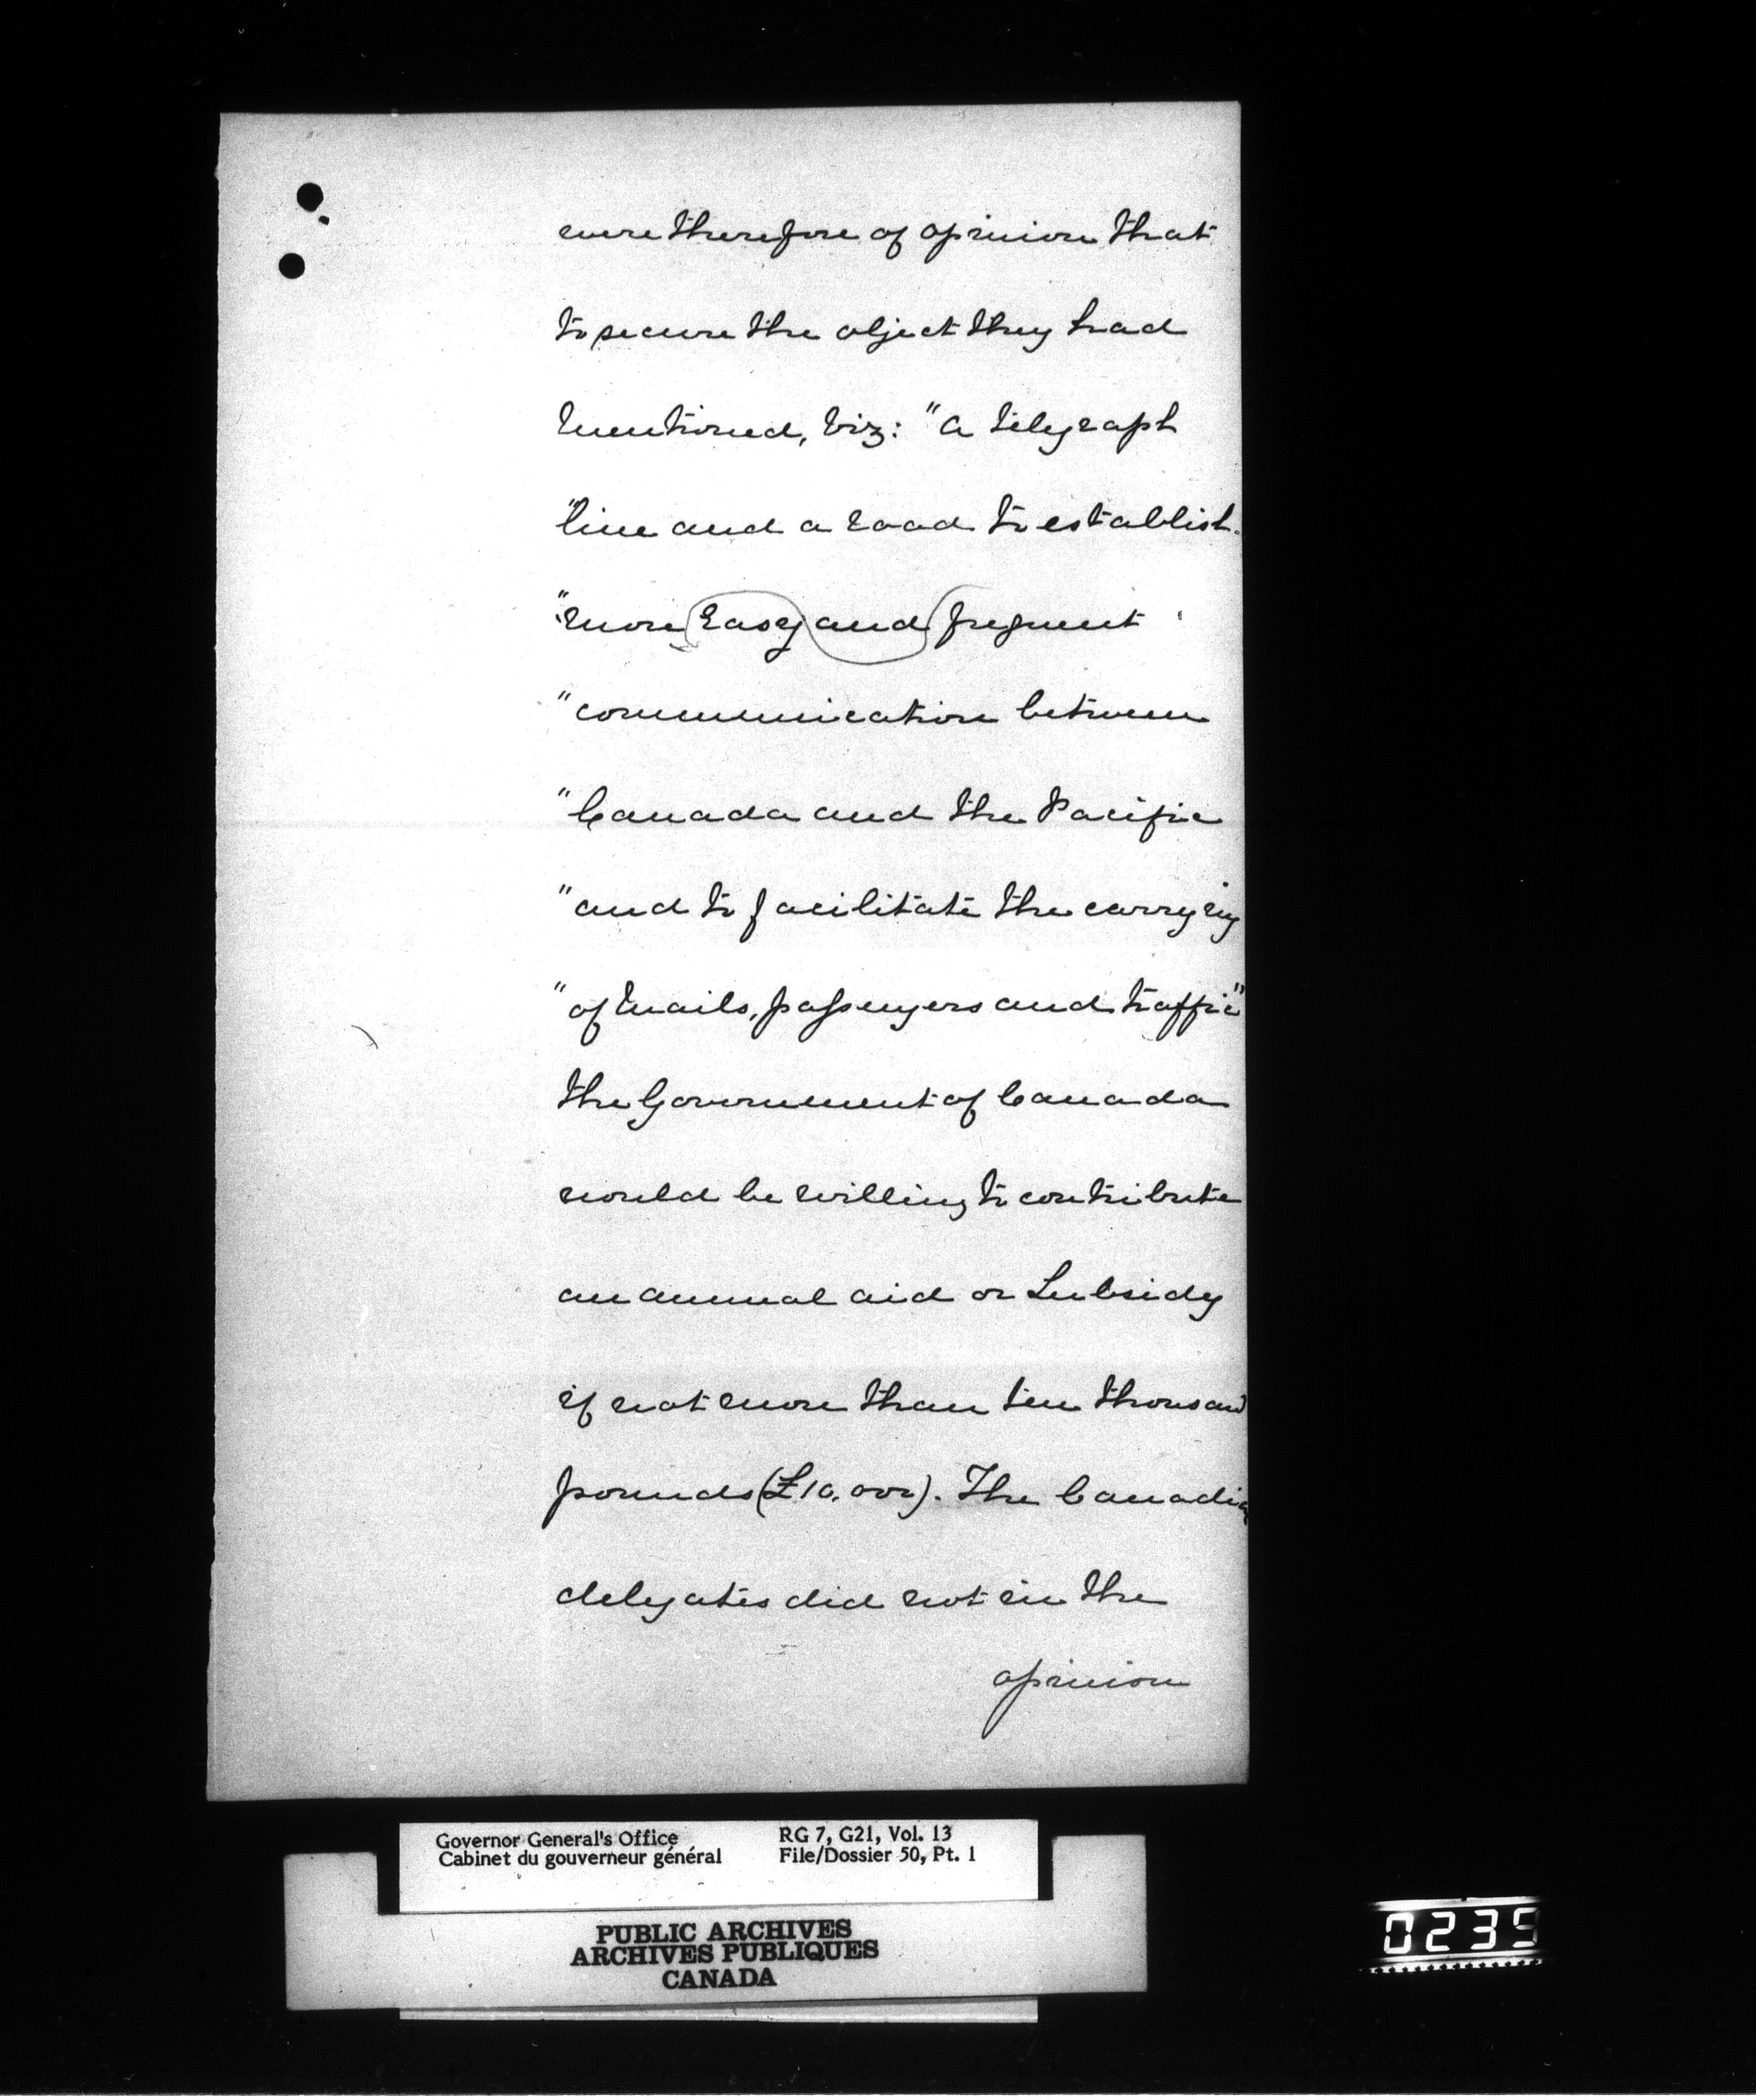 were therefore of opinion that
to secure the object they had
mentioned, viz: "a telegraph
"line and a road to establish
"more easy and frequent
"communication between
"Canada and the Pacific
"and to facilitate the carrying
"of mails, passengers and traffic"
the Government of Canada
would be willing to contribute
an annual aid or Subsidy
if not more than ten thousand
pounds (£10,000). The Canadian
delegates did not in the
opinion
Governor General's Office
Cabinet du gouverneur général
RG 7, G21, Vol. 13
File/Dossier 50, Pt. 1
PUBLIC ARCHIVES
ARCHIVES PUBLIQUES
CANADA
0239